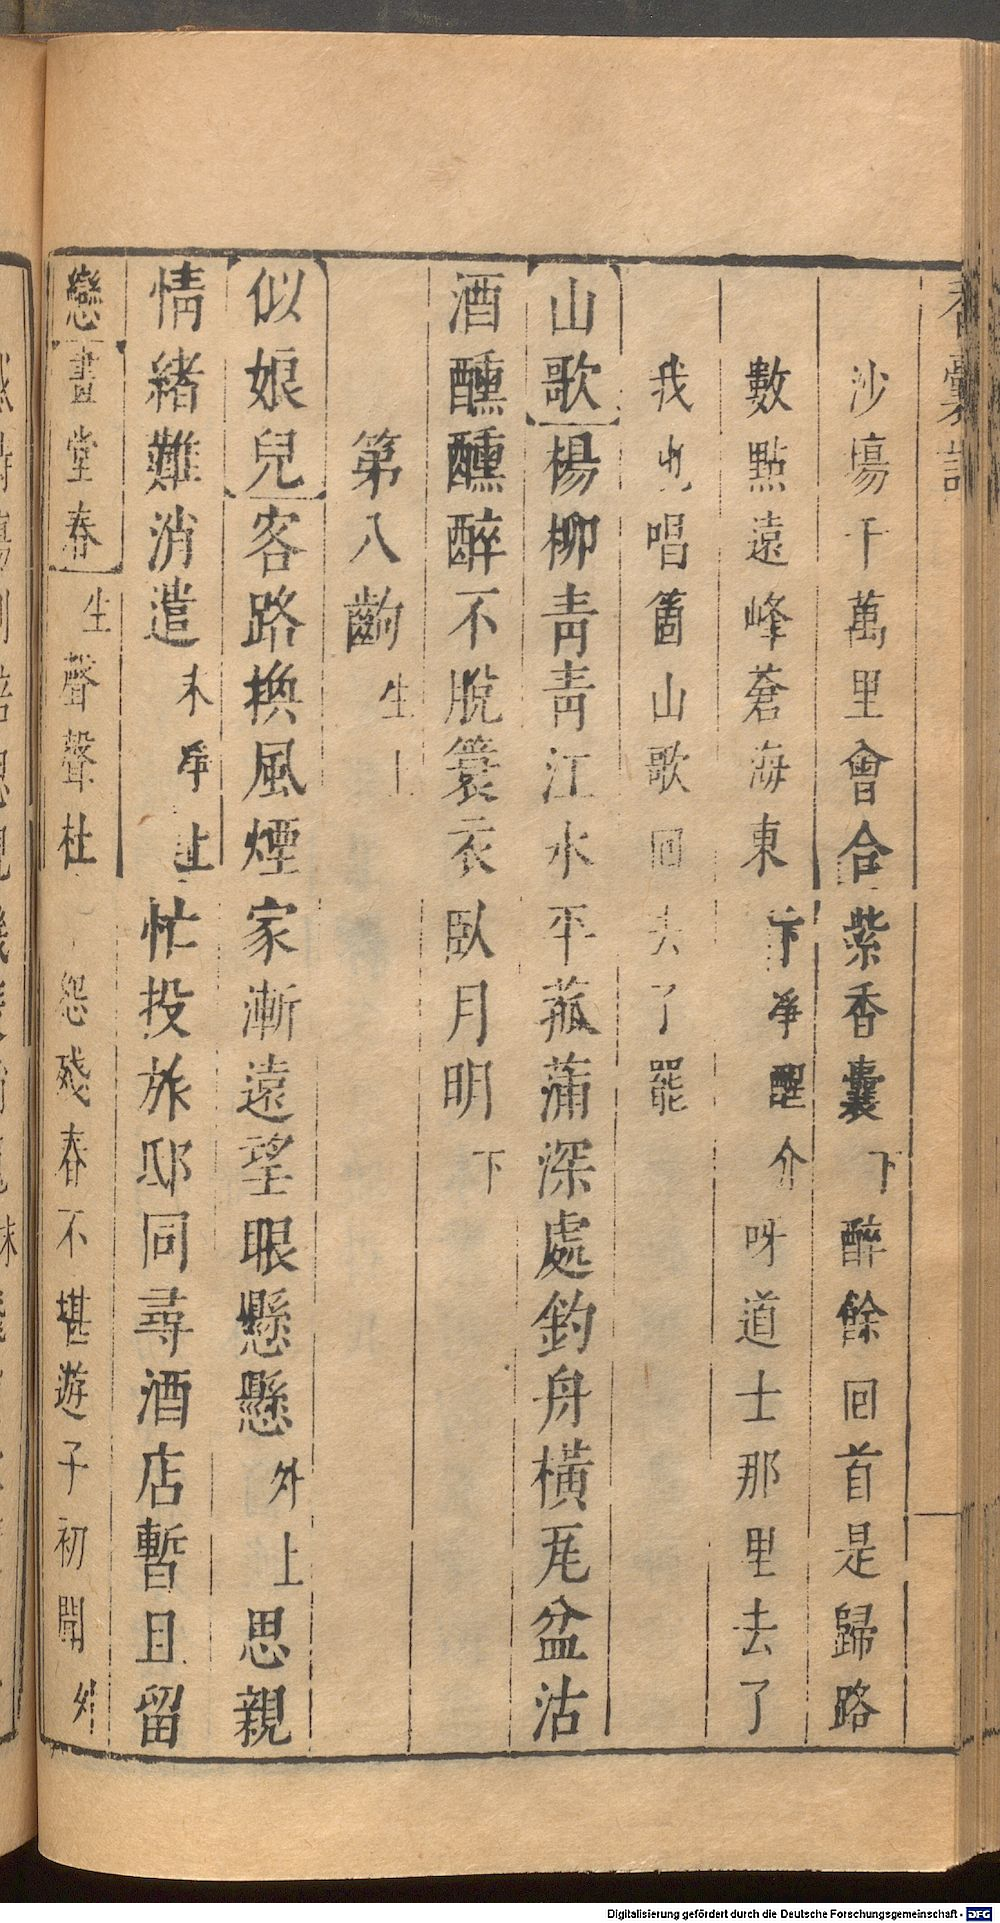 香囊記
沙場千萬里會合紫香囊下醉餘回首是歸路
數點遠峰蒼海東下淨醒介呀道士那里去了
我也唱箇山歌回去了罷
山歌楊柳青青江水平菰蒲深處釣舟橫瓦盆沽
酒醺醺醉不脫簑衣臥月明下
第八齣生上
似娘兒客路換風煙家漸遠望眼懸懸外上思親
情緒難消遣末淨上忙投旅邸同尋酒店暫且留
戀畫堂春生聲聲杜怨殘春不堪遊子初聞外
Digitalisierung gefördert durch die Deutsche Forschungsgemeinschaft - DFG